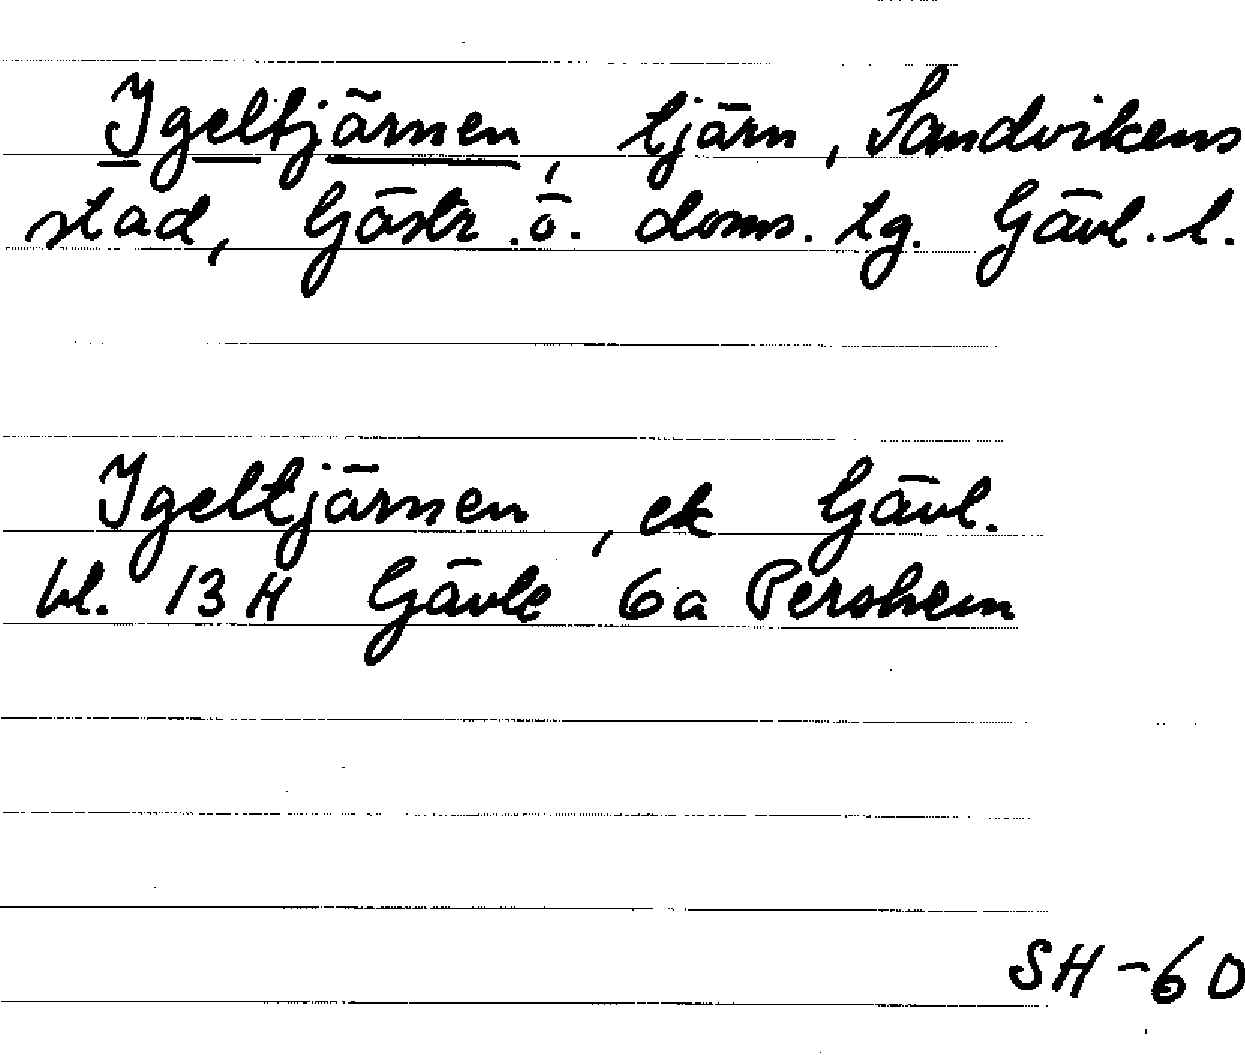 Igeltjärnen, tjärn, Sandvikens
stad, Gästr. ö. doms. tg. Gävl. l.
Igeltjärnen, ek Gävl.
bl. 13 H Gävle 6a Pershem
SH-60